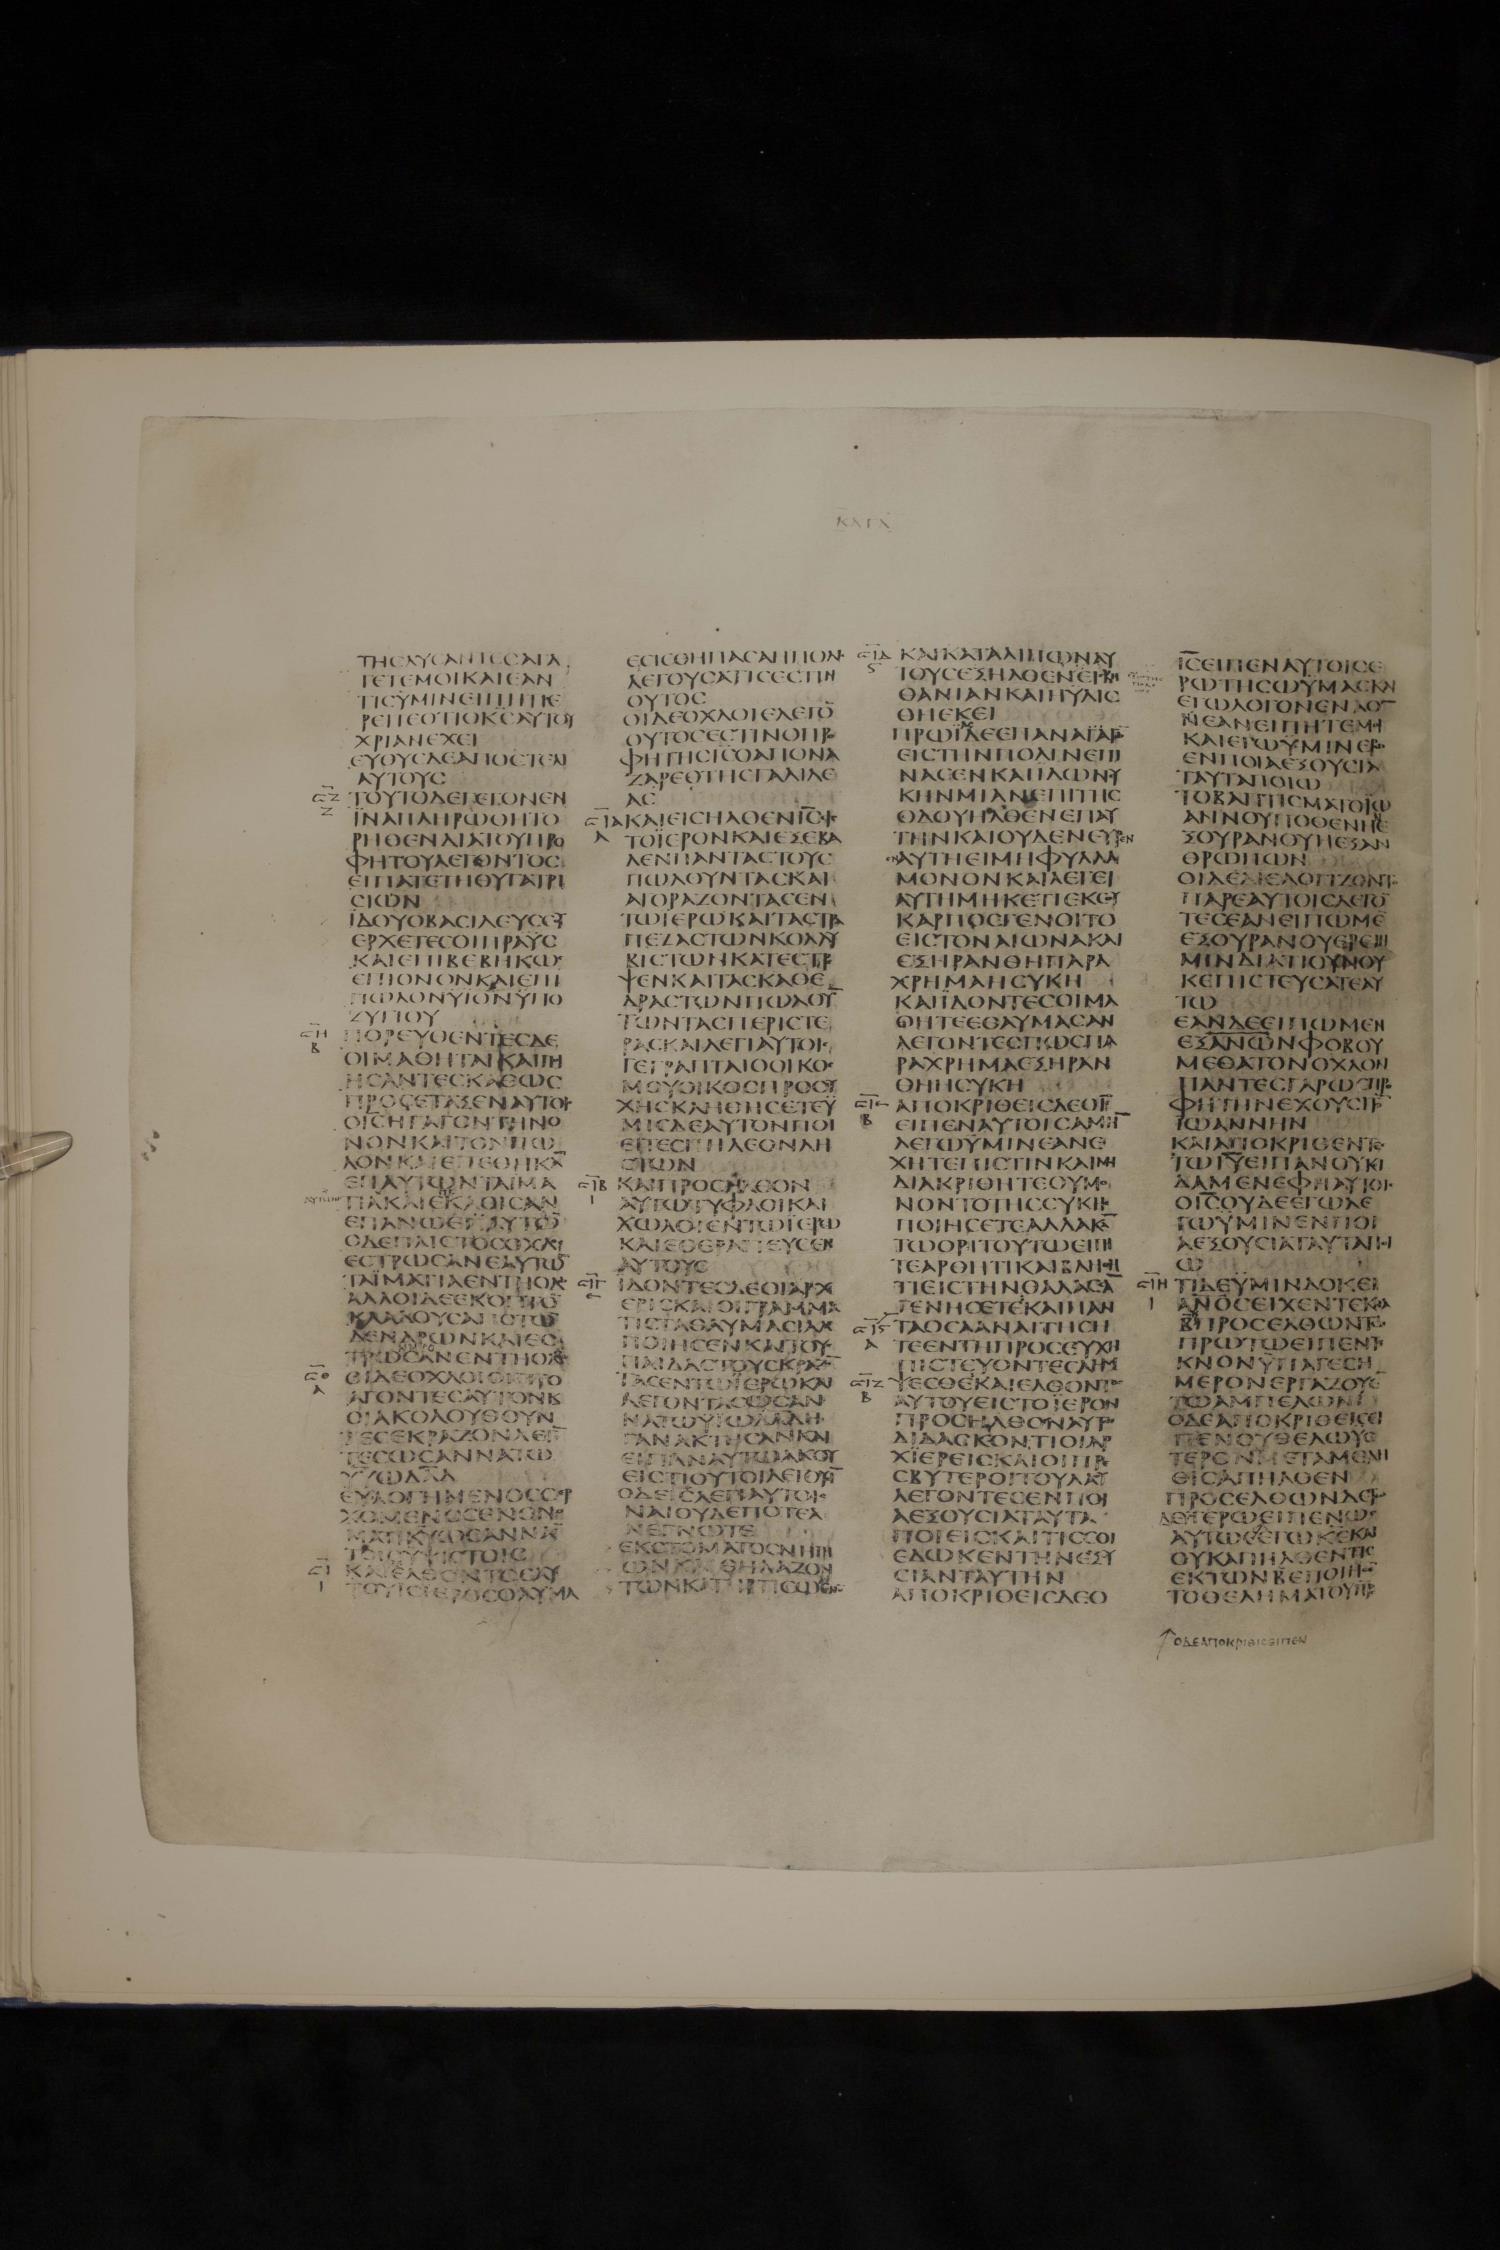 ΚΑΤΑ
ΤΗϹΛΥϹΑΝΤΕϹΑΓΑ
ΓΕΤΕΜΟΙΚΑΙΕΑΝ
ΤΙϹΫΜΙΝΕΙΠΗΤΙΕ
ΡΕΙΤΕΟΤΙΟΚ̅Ϲ̅ΑΥΤΟΥ
ΧΡΙΑΝΕΧΕΙ
ΕΥΘΥϹΔΕΑΠΟϹΤΕΛΙ
ΑΥΤΟΥϹ
ΤΟΥΤΟΔΕΓΕΓΟΝΕΝ
ΪΝΑΠΛΗΡΩΘΗΤΟ
ΡΗΘΕΝΔΙΑΤΟΥΠΡΟ
ΦΗΤΟΥΛΕΓΟΝΤΟϹ
ΕΙΠΑΤΕΤΗΘΥΓΑΤΡΙ
ϹΙΩΝ
ΪΔΟΥΟΒΑϹΙΛΕΥϹϹΟΥ
ΕΡΧΕΤΕϹΟΙΠΡΑΫϹ
ΚΑΙΕΠΙΒΕΒΗΚΩϹ
ΕΠΙΟΝΟΝΚΑΙΕΠΙ
ΠΩΛΟΝΫΪΟΝΫΠΟ
ΖΥΓΙΟΥ
ΠΟΡΕΥΘΕΝΤΕϹΔΕ
ΟΙΜΑΘΗΤΑΙΚΑΙΠΟΙ
ΗϹΑΝΤΕϹΚΑΘΩϹ
ΠΡΟϹΕΤΑΞΕΝΑΥΤΟΙϹ
ΟΙϹΗΓΑΓΟΝΤΗΝΟ
ΝΟΝΚΑΙΤΟΝΠΩ
ΛΟΝΚΑΙΕΠΕΘΗΚΑ̅
ΕΠΑΥΤΩΝΤΑΙΜΑ
ΕΠΑΝΩΕΠΑΥΤΩ̅
ΟΔΕΠΛΙϹΤΟϹΟΧΛΟϹ
ΕϹΤΡΩϹΑΝΕΑΥΤΩ̅
ΤΑΪΜΑΤΙΑΕΝΤΗΟΔΩ
ΑΛΛΟΙΔΕΕΚΟΠΤΟ̅
ΚΛΑΔΟΥϹΑΠΟΤΩ̅
ΔΕΝΔΡΩΝΚΑΙΕϹ
ΑΓΟΝΤΕϹΑΥΤΟΝΚ
ΟΙΑΚΟΛΟΥΘΟΥΝ
ΤΕϹΕΚΡΑΖΟΝΛΕΓΟ̅
ΤΕϹΩϹΑΝΝΑΤΩ
Υ̅Ϊ̅ΩΔ̅Α̅Δ̅
ΕΥΛΟΓΗΜΕΝΟϹΟΕΡ
ΧΟΜΕΝΟϹΕΝΟΝΟ
ΜΑΤΙΚ̅Υ̅ΩϹΑΝΝΑ
ΤΟΙϹΥΨΙϹΤΟΙϹ
ΚΑΙΕΛΘΟΝΤΟϹΑΥ
ΤΟΥΙϹΙΕΡΟϹΟΛΥΜΑ
ΕϹΙϹΘΗΠΑϹΑΗΠΟΛΙϹ
ΛΕΓΟΥϹΑΤΙϹΕϹΤΙΝ
ΟΥΤΟϹ
ΟΙΔΕΟΧΛΟΙΕΛΕΓΟ̅
ΟΥΤΟϹΕϹΤΙΝΟΠΡΟ
ΦΗΤΗϹΙ̅Ϲ̅ΟΑΠΟΝΑ
ΖΑΡΕΘΤΗϹΓΑΛΙΛΕ
ΑϹ
ΚΑΙΕΙϹΗΛΘΕΝΙ̅Ϲ̅ΕΙϹ
ΤΟΪΕΡΟΝΚΑΙΕΞΕΒΑ
ΛΕΝΠΑΝΤΑϹΤΟΥϹ
ΠΩΛΟΥΝΤΑϹΚΑΙ
ΑΓΟΡΑΖΟΝΤΑϹΕΝ
ΤΩΪΕΡΩΚΑΙΤΑϹΤΡΑ
ΠΕΖΑϹΤΩΝΚΟΛΛΥ
ΒΙϹΤΩΝΚΑΤΕϹΤΡΕ
ΨΕΝΚΑΙΤΑϹΚΑΘΕ
ΔΡΑϹΤΩΝΠΩΛΟΥ̅
ΤΩΝΤΑϹΠΕΡΙϹΤΕ
ΡΑϹΚΑΙΛΕΓΙΑΥΤΟΙϹ
ΓΕΓΡΑΠΤΑΙΟΟΙΚΟϹ
ΜΟΥΟΙΚΟϹΠΡΟϹΕΥ
ΧΗϹΚΛΗΘΗϹΕΤΕΫ
ΜΙϹΔΕΑΥΤΟΝΠΟΙ
ΕΙΤΕϹΠΗΛΕΟΝΛΗ
ϹΤΩΝ
ΚΑΙΠΡΟϹΗΛΘΟΝ
ΑΥΤΩΤΥΦΛΟΙΚΑΙ
ΧΩΛΟΙΕΝΤΩΪΕΡΩ
ΚΑΙΕΘΕΡΑΠΕΥϹΕΝ
ΑΥΤΟΥϹ
ΙΔΟΝΤΕϹΔΕΟΙΑΡΧΙ
ΕΡΙϹΚΑΙΟΙΓΡΑΜΜΑ
ΤΙϹΤΑΘΑΥΜΑϹΙΑΑ
ΠΟΙΗϹΕΝΚΑΙΤΟΥϹ
ΠΑΙΔΑϹΤΟΥϹΚΡΑΖΟ̅
ΤΑϹΕΝΤΩΪΕΡΩΚΑΙ
ΛΕΓΟΝΤΑϹΩϹΑΝ
ΝΑΤΩΥ̅Ϊ̅ΩΔ̅Α̅Δ̅ΗΓΑ
ΓΑΝΑΚΤΗϹΑΝΚΑΙ
ΕΙΠΑΝΑΥΤΩΑΚΟΥ
ΕΙϹΤΙΟΥΤΟΙΛΕΓΟΥϹΙ̅
ΟΔΕΙ̅Ϲ̅ΛΕΓΙΑΥΤΟΙϹ
ΝΑΙΟΥΔΕΠΟΤΕΑ
ΝΕΓΝΩΤΕ
ΕΚϹΤΟΜΑΤΟϹΝΗΠΙ
ΩΝΚΑΙΘΗΛΑΖΟΝ
ΤΩΝΚΑΤΗΡΤΙϹΩΑΙΝΟΝ
ΚΑΙΚΑΤΑΛΙΠΩΝΑΥ
ΤΟΥϹΕΞΗΛΘΕΝΕΙϹΒΗ
ΘΑΝΙΑΝΚΑΙΗΥΛΙϹ
ΘΗΕΚΕΙ
ΠΡΩΪΔΕΕΠΑΝΑΓΑΓΩ̅
ΕΙϹΤΗΝΠΟΛΙΝΕΠΙ
ΝΑϹΕΝΚΑΙΪΔΩΝϹΥ
ΚΗΝΜΙΑΝΕΠΙΤΗϹ
ΟΔΟΥΗΛΘΕΝΕΠΑΥ
ΤΗΝΚΑΙΟΥΔΕΝΕΥΡΕΝ
ΕΝΑΥΤΗΕΙΜΗΦΥΛΛΑ
ΜΟΝΟΝΚΑΙΛΕΓΕΙ
ΑΥΤΗΜΗΚΕΤΙΕΚϹΟΥ
ΚΑΡΠΟϹΓΕΝΟΙΤΟ
ΕΙϹΤΟΝΑΙΩΝΑΚΑΙ
ΕΞΗΡΑΝΘΗΠΑΡΑ
ΧΡΗΜΑΗϹΥΚΗ
ΚΑΙΪΔΟΝΤΕϹΟΙΜΑ
ΘΗΤΕΕΘΑΥΜΑϹΑΝ
ΛΕΓΟΝΤΕϹΠΩϹΠΑ
ΡΑΧΡΗΜΑΕΞΗΡΑΝ
ΘΗΗϹΥΚΗ
ΑΠΟΚΡΙΘΕΙϹΔΕΟΙ̅Ϲ̅
ΕΙΠΕΝΑΥΤΟΙϹΑΜΗ̅
ΛΕΓΩΫΜΙΝΕΑΝΕ
ΧΗΤΕΠΙϹΤΙΝΚΑΙΜΗ
ΔΙΑΚΡΙΘΗΤΕΟΥΜΟ
ΝΟΝΤΟΤΗϹϹΥΚΗϹ
ΠΟΙΗϹΕΤΕΑΛΛΑΚΑ̅
ΤΩΟΡΙΤΟΥΤΩΕΙΠΗ
ΤΕΑΡΘΗΤΙΚΑΙΒΛΗΘΗ
ΤΙΕΙϹΤΗΝΘΑΛΑϹϹΑ̅
ΓΕΝΗϹΕΤΕΚΑΙΠΑΝ
ΤΑΟϹΑΑΝΑΙΤΗϹΗ
ΤΕΕΝΤΗΠΡΟϹΕΥΧΗ
ΠΙϹΤΕΥΟΝΤΕϹΛΗΜ
ΨΕϹΘΕΚΑΙΕΛΘΟΝΤΟϹ
ΑΥΤΟΥΕΙϹΤΟΪΕΡΟΝ
ΠΡΟϹΗΛΘΟΝΑΥΤΩ
ΔΙΔΑϹΚΟΝΤΙΟΙΑΡ
ΧΪΕΡΕΙϹΚΑΙΟΙΠΡΕ
ϹΒΥΤΕΡΟΙΤΟΥΛΑΟΥ
ΛΕΓΟΝΤΕϹΕΝΠΟΙ
ΑΕΞΟΥϹΙΑΤΑΥΤΑ
ΠΟΙΕΙϹΚΑΙΤΙϹϹΟΙ
ΕΔΩΚΕΝΤΗΝΕΞΟΥ
ϹΙΑΝΤΑΥΤΗΝ
ΑΠΟΚΡΙΘΕΙϹΔΕΟ
Ι̅Ϲ̅ΕΙΠΕΝΑΥΤΟΙϹΕ
ΡΩΤΗϹΩΫΜΑϹΚΑΙ
ΕΓΩΛΟΓΟΝΕΝΑΟ̅
ΕΑΝΕΙΠΗΤΕΜΟΙ
ΚΑΙΕΓΩΫΜΙΝΕΡΩ
ΕΝΠΟΙΑΕΞΟΥϹΙΑ
ΤΑΥΤΑΠΟΙΩ
ΤΟΒΑΠΤΙϹΜΑΤΟΪΩ
ΑΝΝΟΥΠΟΘΕΝΗΝΕ
ΞΟΥΡΑΝΟΥΗΕΞΑΝ
ΘΡΩΠΩΝ
ΟΙΔΕΔΙΕΛΟΓΙΖΟΝΤΟ
ΠΑΡΕΑΥΤΟΙϹΛΕΓΟ̅
ΤΕϹΕΑΝΕΙΠΩΜΕ̅
ΕΞΟΥΡΑΝΟΥΕΡΕΙΗ
ΜΙΝΔΙΑΤΙΟΥΝΟΥ
ΚΕΠΙϹΤΕΥϹΑΤΕΑΥ
ΤΩ
ΕΑΝΔΕΕΙΠΩΜΕΝ
ΕΞΑ̅Ν̅Ω̅Ν̅ΦΟΒΟΥ
ΜΕΘΑΤΟΝΟΧΛΟΝ
ΠΑΝΤΕϹΓΑΡΩϹΠΡΟ
ΦΗΤΗΝΕΧΟΥϹΙΤΟ̅
ΪΩΑΝΝΗΝ
ΚΑΙΑΠΟΚΡΙΘΕΝΤΕϹ
ΤΩΙ̅Υ̅ΕΙΠΑΝΟΥΚΟΙ
ΔΑΜΕΝΕΦΗΑΥΤΟΙϹ
ΟΙ̅Ϲ̅ΟΥΔΕΕΓΩΛΕ
ΓΩΫΜΙΝΕΝΠΟΙ
ΑΕΞΟΥϹΙΑΤΑΥΤΑΠΟΙ
Ω
ΤΙΔΕΫΜΙΝΔΟΚΕΙ
Α̅Ν̅Ο̅Ϲ̅ΕΙΧΕΝΤΕΚΝΑ
Β̅ΠΡΟϹΕΛΘΩΝΤΩ
ΠΡΩΤΩΕΙΠΕΝΤΕ
ΚΝΟΝΫΠΑΓΕϹΗ
ΜΕΡΟΝΕΡΓΑΖΟΥΕ̅
ΤΩΑΜΠΕΛΩΝΙ
ΟΔΕΑΠΟΚΡΙΘΕΙϹΕΙ
ΠΕΝΟΥΘΕΛΩΥϹ
ΤΕΡΟΝΜΕΤΑΜΕΛΗ
ΘΙϹΑΠΗΛΘΕΝ
ΠΡΟϹΕΛΘΩΝΔΕΤΩ
ΔΕΥΤΕΡΩΕΙΠΕΝΩϹ
ΟΥΚΑΠΗΛΘΕΝΤΙϹ
ΕΚΤΩΝΒ̅ΕΠΟΙΗϹΕ̅
ΤΟΘΕΛΗΜΑΤΟΥΠΡϹ
ΟΔΕΑΠΟΚΡΙΘΙϹΕΙΠΕΝ